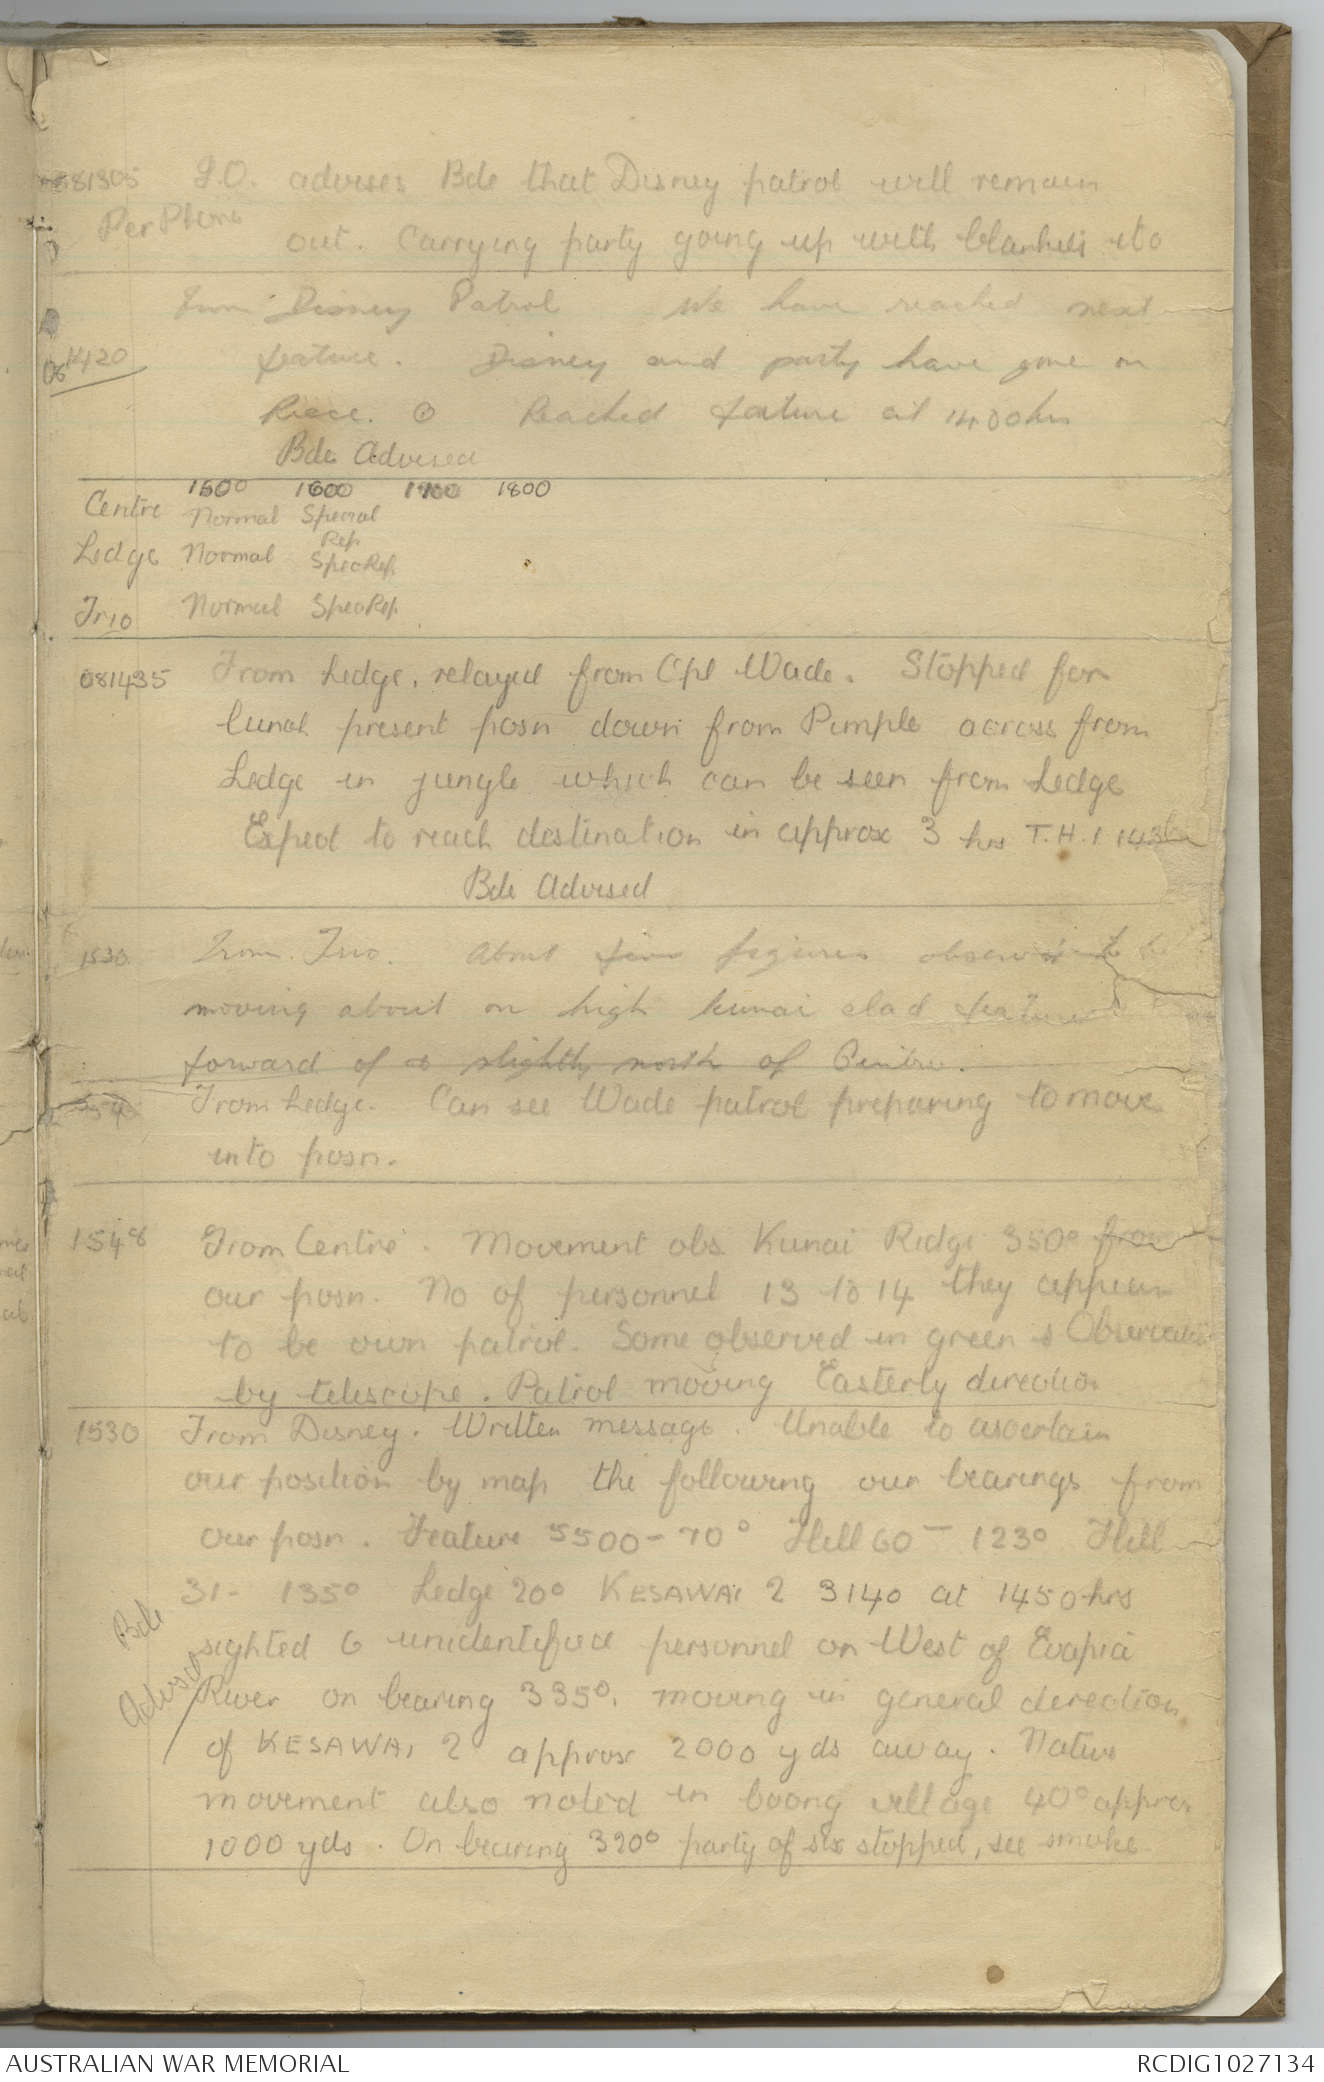 081305 I.O. advises Bde that Disney patrol will remain
Per Phone out. Carrying party going up with blankets etc
From Disney Patrol We have reached next
081420 feature. Disney and party have gone on
Recce. Reached feature at 1400hrs
Bde Advised
1500 1600 1700 1800
Centre Normal Special
Rep
Ledge Normal SpecRep
Trio Normal SpecRep
081435 From Ledge, relayed from Cpl Wade. Stopped for
lunch present posn down from Pimple across from
Ledge in jungle which can be seen from Ledge
Expect to reach destination in approx 3 hrs T.H.I.
Bde Advised
1530 From Trio. About five figures observed
moving about on high kunai clad feature
forward of & slightly north of Centre.
From Ledge. Can see Wade patrol preparing to move
into posn.
1548 From Centre. Movement obs Kunai Ridge 350° from
our posn. No of personnel 13 to 14 they appear
to be own patrol. Some observed in green s
by telescope. Patrol moving Easterly direction
1530 From Disney. Written message. Unable to ascertain
our position by map the following our bearings from
our posn. Feature 5500-70° Hill 60 - 123° Hill
31- 135° Ledge 20° KESAWAI 2 3140 at 1450hrs
Bde sighted 6 unidentified personnel on West of Evapia
Advised River on bearing 335°. moving in general direction
of KESAWAI 2 approx 2000 yds away. Native
movement also noted in boong village 40° approx
1000 yds. On bearing 320° party of six stopped, see smoke
AUSTRALIAN WAR MEMORIAL
RCDIG1027134